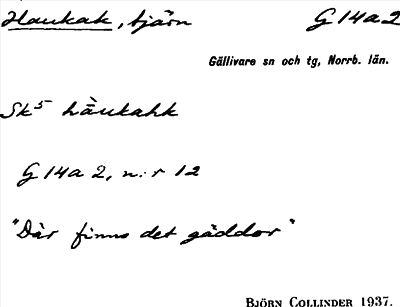 Haukak, tjärn G 14a2
Gällivare sn och tg, Norrb. län.
Sk5 hàukahk
G 14a 2, n:r 12
"Där finns det gäddor"
BJÖRN COLLINDER 1937.